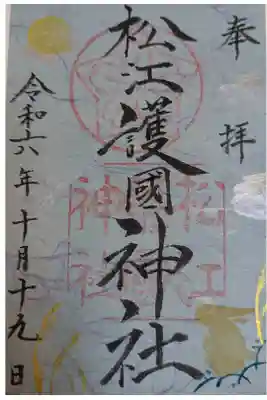 奉拝
松江護國神社
令和六年十月十九日